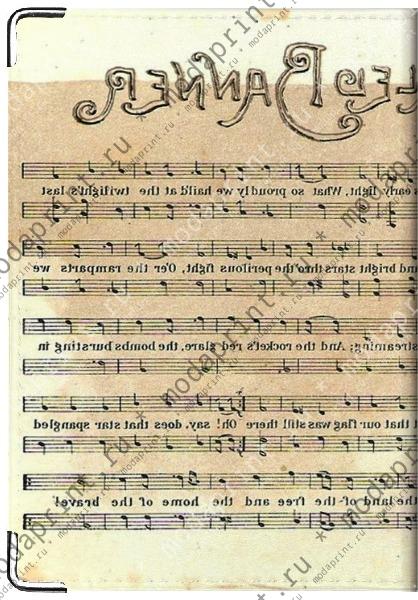 LED BANNER
early light, What so proudly we hail'd at the twilight's last
nd bright stars thro' the perilous fight, O'er the ramparts we
streaming; And the rocket's red glare, the bombs bursting in
t that our flag was still there Oh! say, does that star spangled
the land of the free and the home of the brave!
modaprint.ru